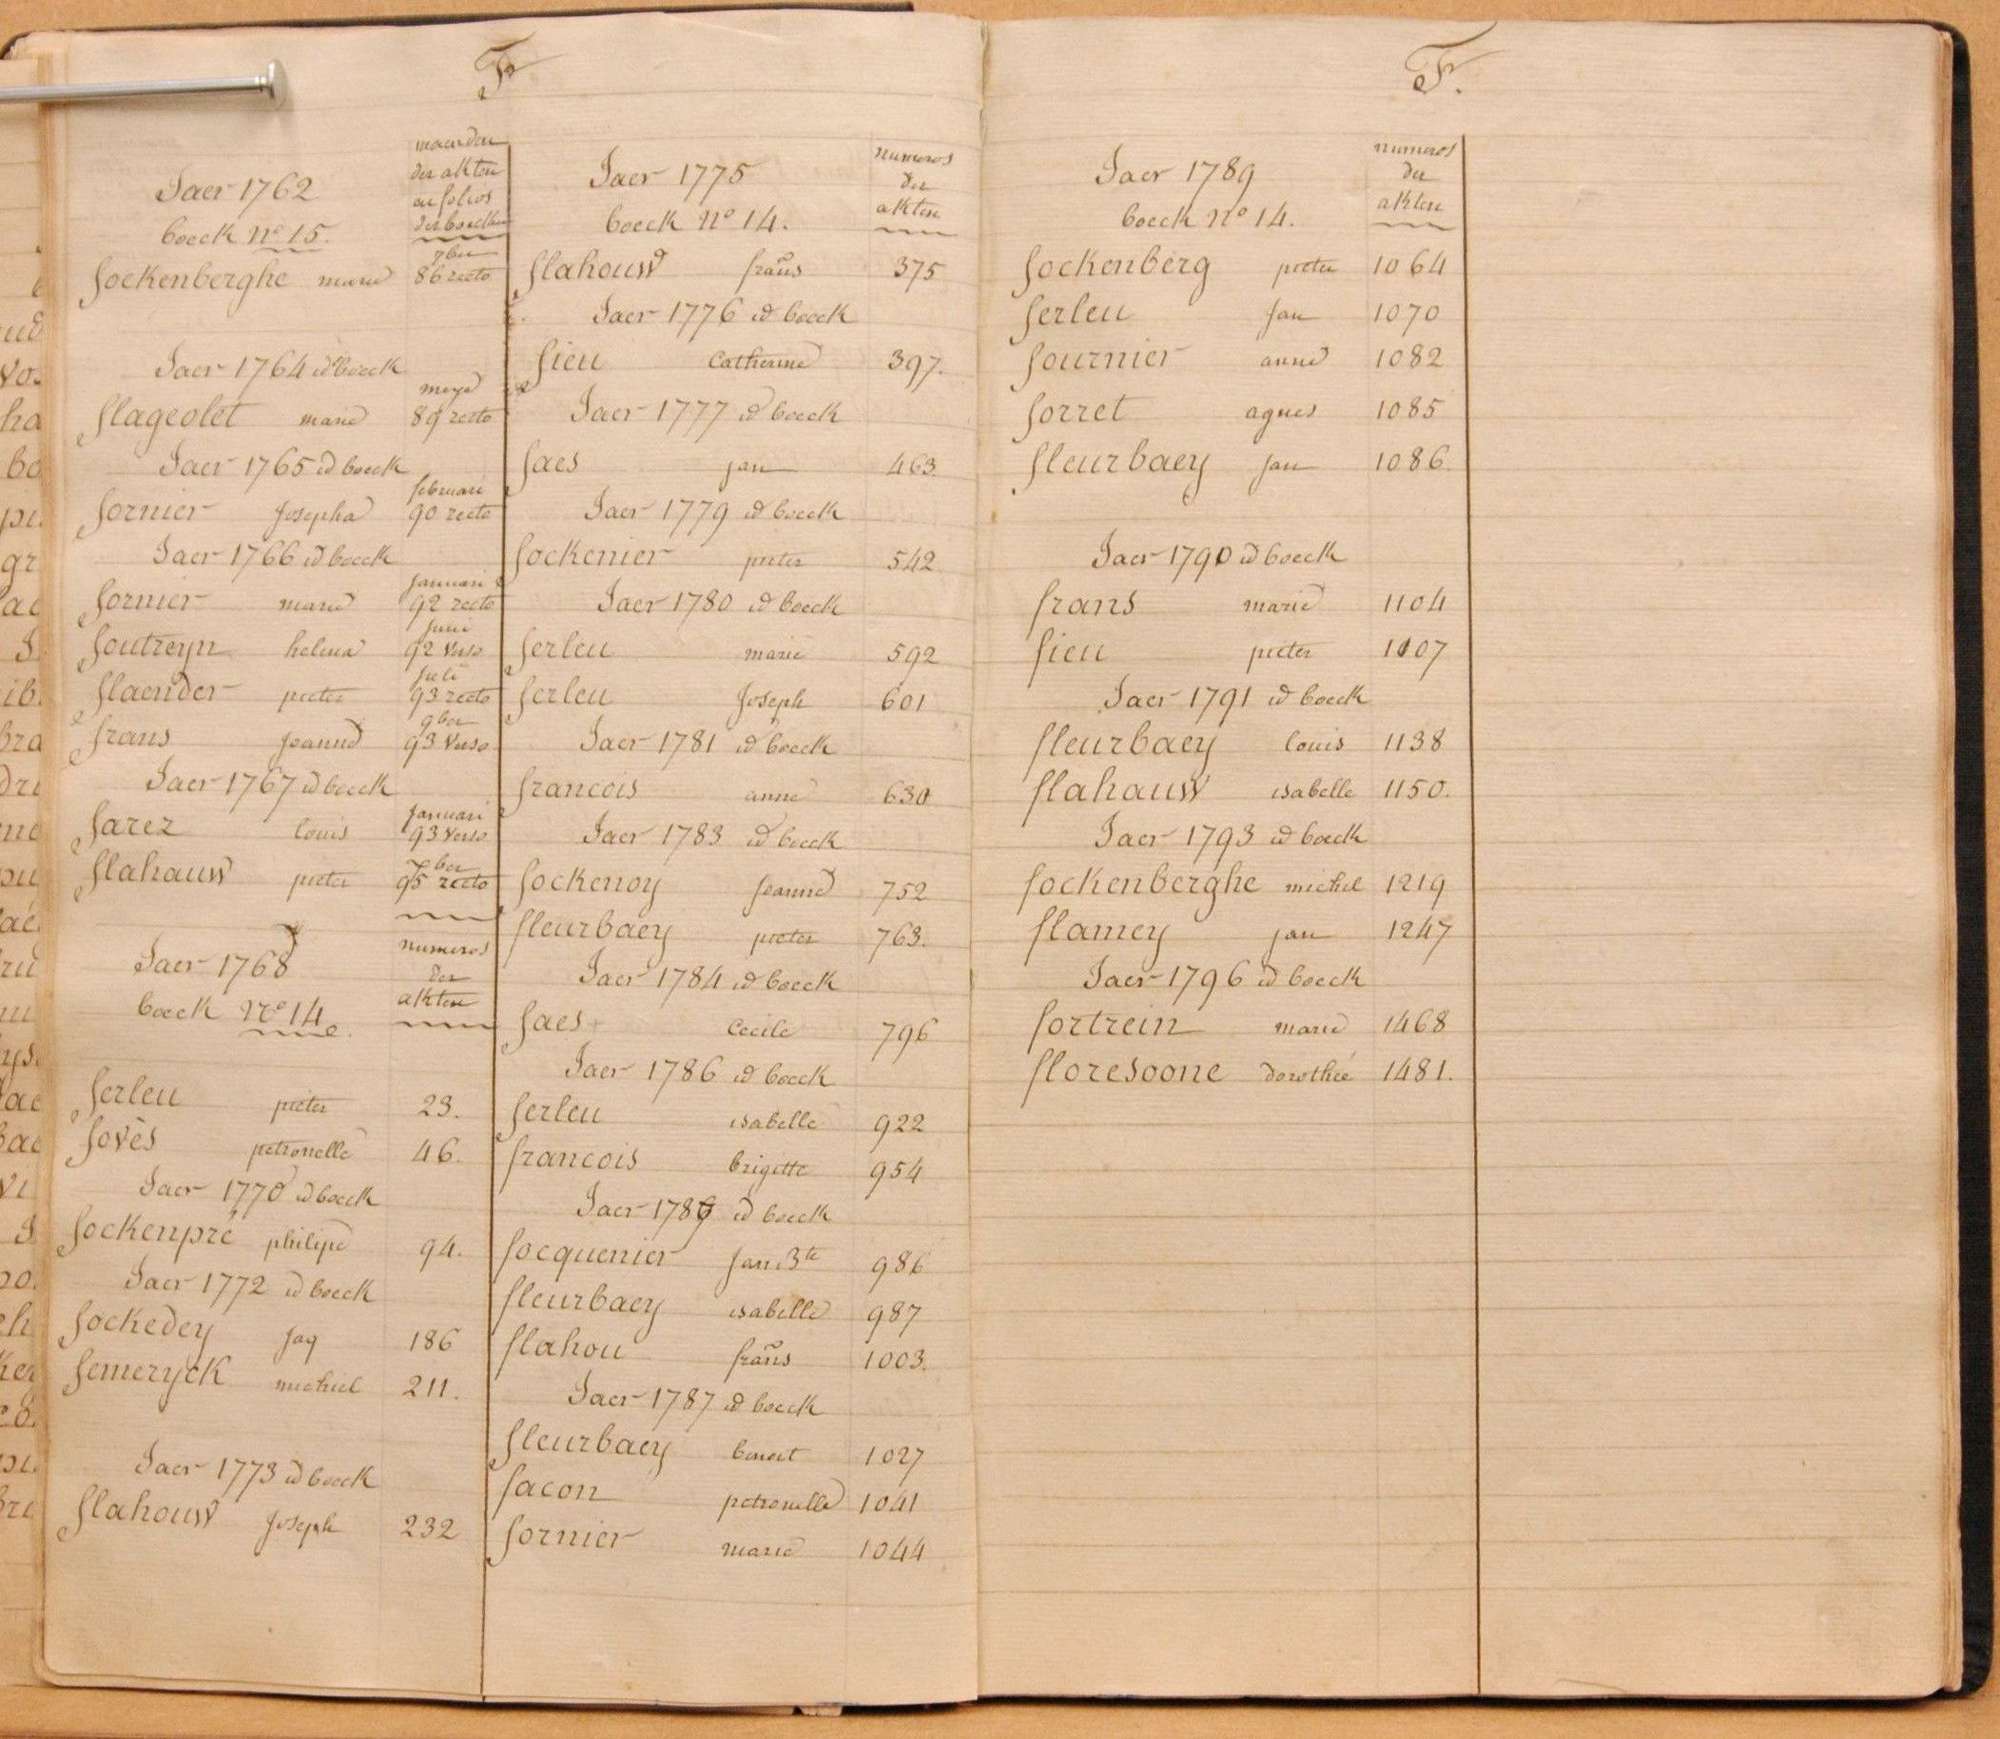 F
Jaer 1762
boeck No 15.
maenden
der akten
en folios
der boecken
7ber
fockenberghe marie 86 recto
Jaer 1764 id boeck
meye
flageolet marie 89 recto
Jaer 1765 id boeck
februari
fornier Josepha 90 recto
Jaer 1766 id boeck
Januari
fornier marie 92 recto
Juni
foutreyn helena 92 verso
Juli
flaender pieter 93 recto
9ber
frans Jeanne 93 verso
Jaer 1767 id boeck
Januari
farez louis 93 verso
7ber
flahauw pieter 95 recto
Jaer 1768
boeck No 14
numeros
der
akten
ferleu pieter 23.
fovès petronelle 46.
Jaer 1770 id boeck
fockenpré philipe 94.
Jaer 1772 id boeck
fockedey Jaq 186
femeryck michiel 211.
Jaer 1773 id boeck
flahouw Joseph 232
Jaer 1775
boeck No 14.
numeros
der
akten
flahouw frans 375
Jaer 1776 id boeck
fieu Catherine 397.
Jaer 1777 id boeck
faes jan 463.
Jaer 1779 id boeck
fockenier pieter 542
Jaer 1780 id boeck
ferleu marie 592
ferleu Joseph 601
Jaer 1781 id boeck
francois anne 630
Jaer 1783 id boeck
fockenoy Jeanne 752
fleurbaey pieter 763.
Jaer 1784 id boeck
faes Cecile 796
Jaer 1786 id boeck
ferleu isabelle 922
francois brigitte 954
Jaer 1789 id boeck
focquenier Jan Bte 986
fleurbaey isabelle 987
flahou frans 1003.
Jaer 1787 id boeck
fleurbaey benoit 1027
facon petronelle 1041
fornier marie 1044
F.
Jaer 1789
boeck No 14.
numeros
der
akten
fockenberg pieter 1064
ferleu Jan 1070
fournier anne 1082
forret agnes 1085
fleurbaey Jan 1086.
Jaer 1790 id boeck
frans marie 1104
fieu pieter 1107
Jaer 1791 id boeck
fleurbaey louis 1138
flahauw isabelle 1150.
Jaer 1793 id boeck
fockenberghe michel 1219
flamey jan 1247
Jaer 1796 id boeck
fortrein marie 1468
floresoone dorothée 1481.